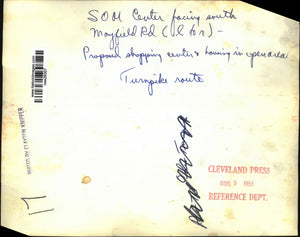 SOM Center facing south
Mayfield Rd (l to r) -
Proposed shopping center & housing in open area
Turnpike route
CLEVELAND PRESS
AUG 9 1955
REFERENCE DEPT.
17